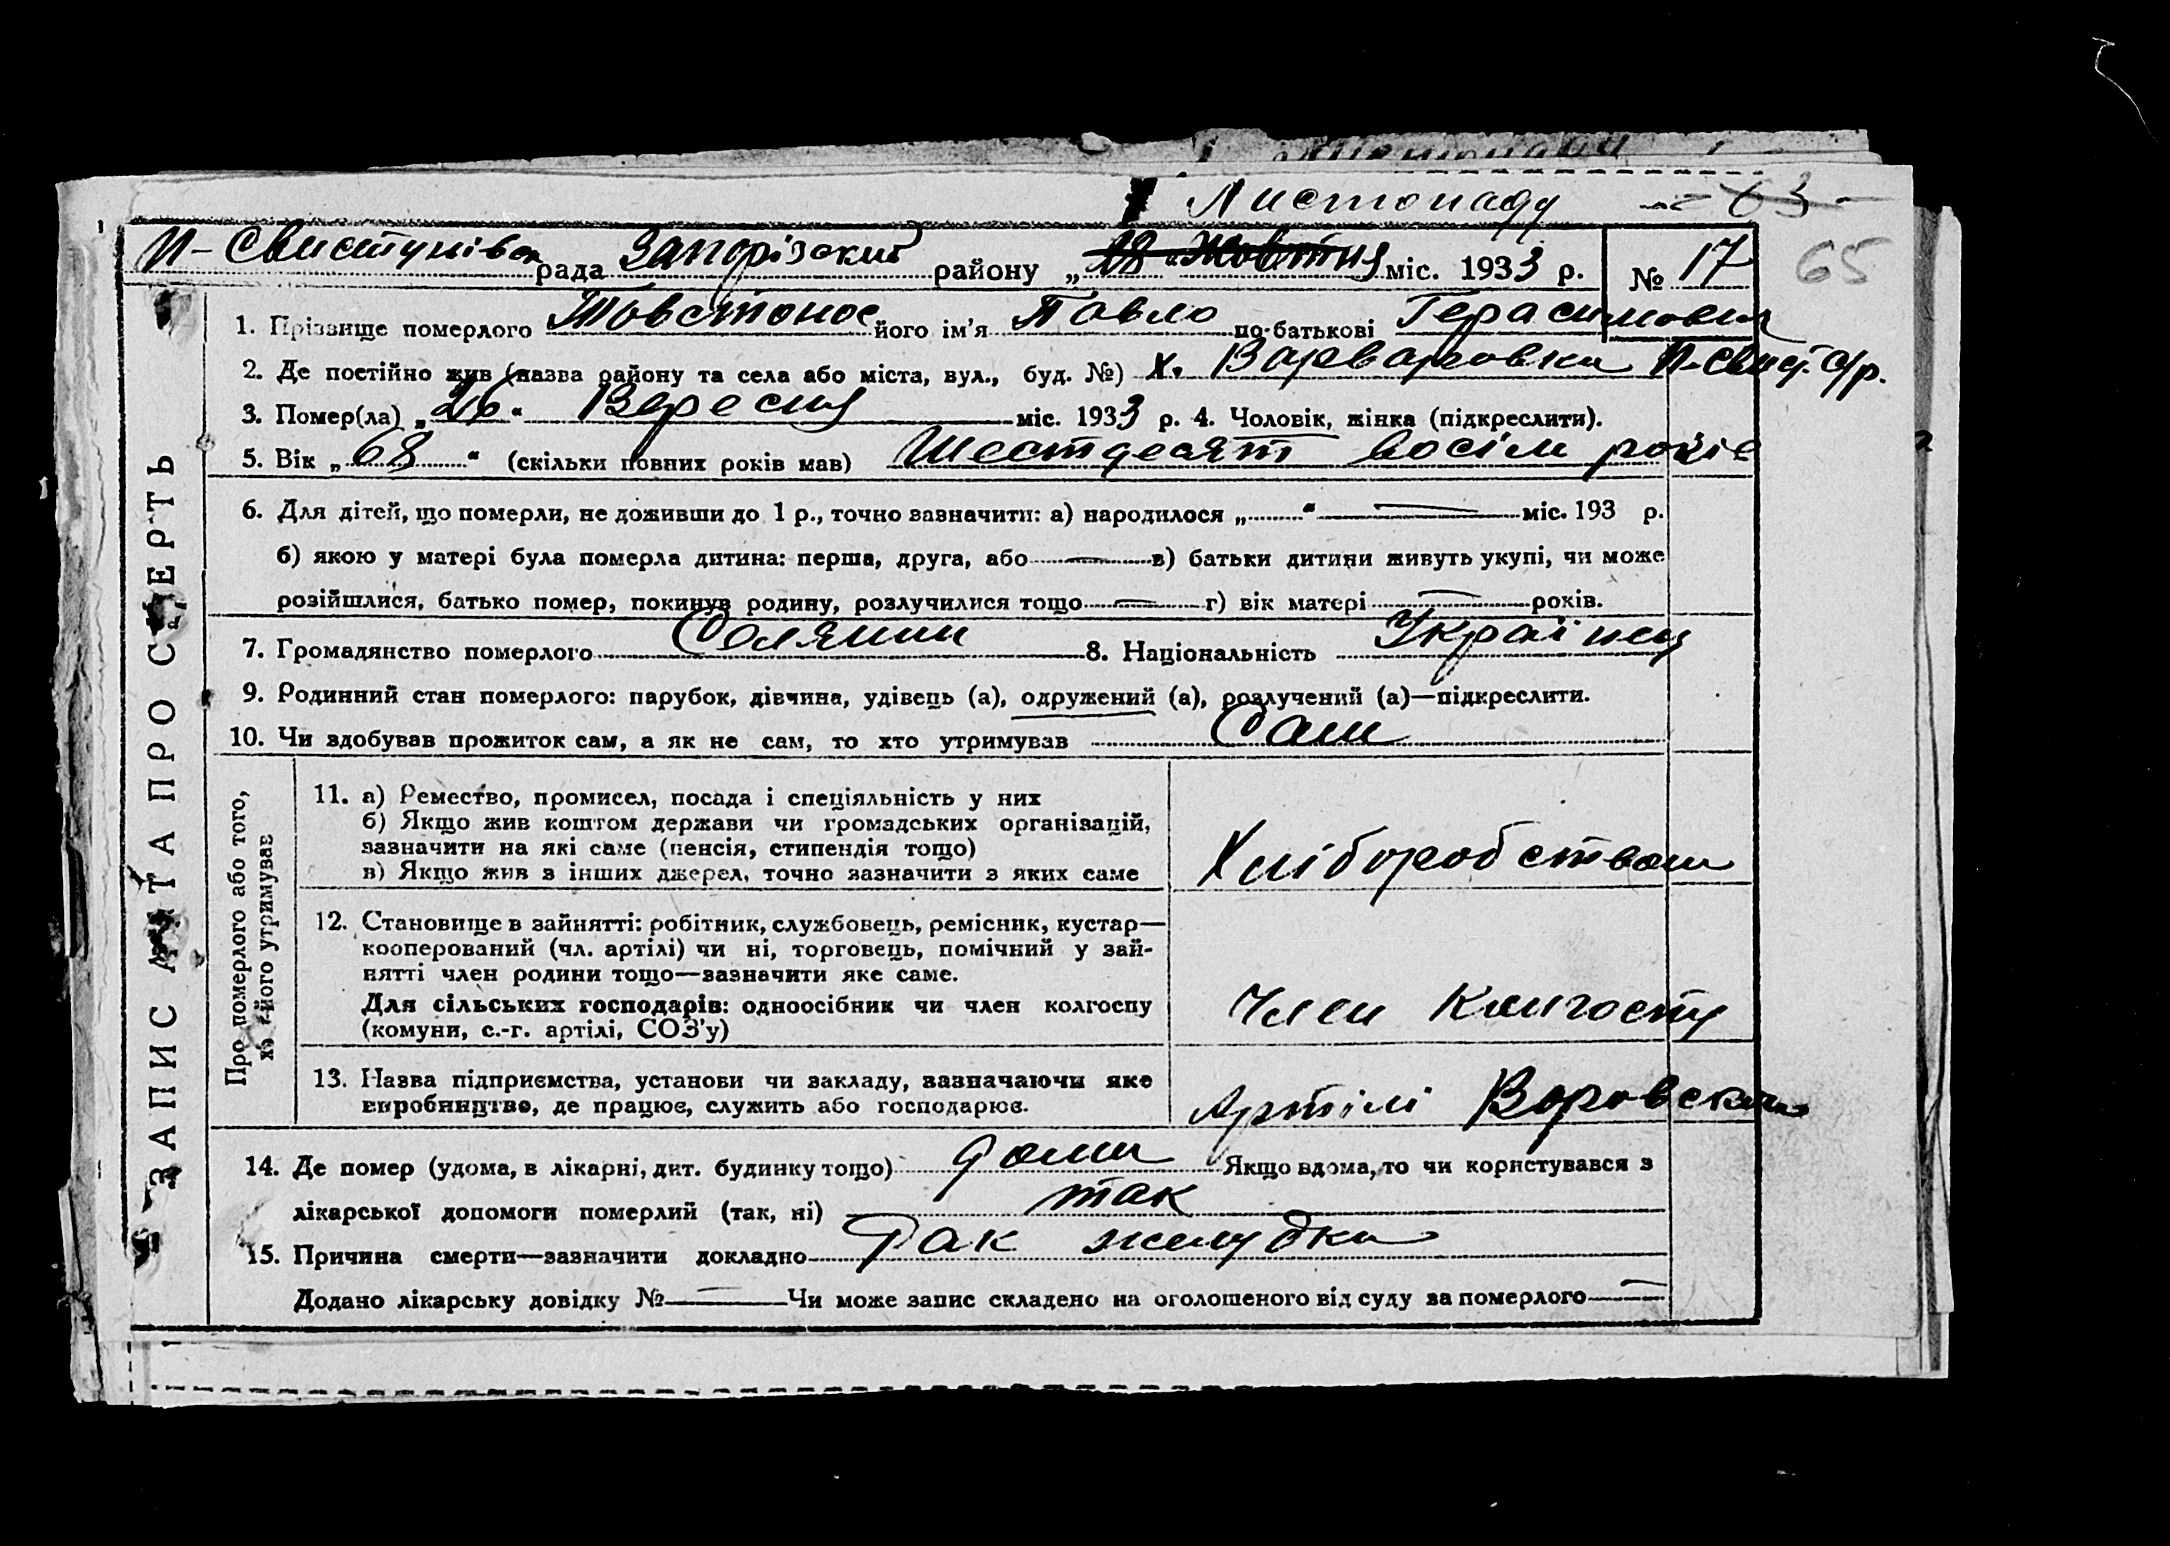 1 Листопаду 63
П-Свистунівск рада Запорізький району „18" Жовтня міс. 1933 р. № 17 65
1. Прізвище померлого Товстонос його ім'я Павло по-батькові Герасимович
2. Де постійно жив (назва району та села або міста, вул., буд. №) х. Варваровка П-Свист. с/р.
3. Помер(ла) „26" Вересня міс. 1933 р. 4. Чоловік, жінка (підкреслити).
5. Вік „68" (скільки повних років мав) Шестдесят восім років
6. Для дітей, що померли, не доживши до 1 р., точно зазначити: а) народилося „ " — міс. 193 р.
б) якою у матері була померла дитина: перша, друга, або — в) батьки дитини живуть укупі, чи може
розійшлися, батько помер, покинув родину, розлучилися тощо — г) вік матері — років.
7. Громадянство померлого Селянин 8. Національність Українец
9. Родинний стан померлого: парубок, дівчина, удівець (а), одружений (а), розлучений (а)—підкреслити.
10. Чи здобував прожиток сам, а як не сам, то хто утримував Сам
ЗАПИС АКТА ПРО СМЕРТЬ
Про померлого або того,
хто його утримував
11. а) Ремество, промисел, посада і спеціяльність у них
б) Якщо жив коштом держави чи громадських організацій,
зазначити на які саме (пенсія, стипендія тощо)
в) Якщо жив з інших джерел, точно зазначити з яких саме
Хліборобством
12. Становище в зайнятті: робітник, службовець, ремісник, кустар—
кооперований (чл. артілі) чи ні, торговець, помічний у зай-
нятті член родини тощо—зазначити яке саме.
Для сільських господарів: одноосібник чи член колгоспу
(комуни, с.-г. артілі, СОЗ'у)
Член Колгоспу
13. Назва підприємства, установи чи закладу, зазначаючи яке
виробництво, де працює, служить або господарює.
Артілі Воровского
14. Де помер (удома, в лікарні, дит. будинку тощо) дома Якщо вдома, то чи користувався з
лікарської допомоги померлий (так, ні) так
15. Причина смерти—зазначити докладно Рак желудка
Додано лікарську довідку № — Чи може запис складено на оголошеного від суду за померлого —